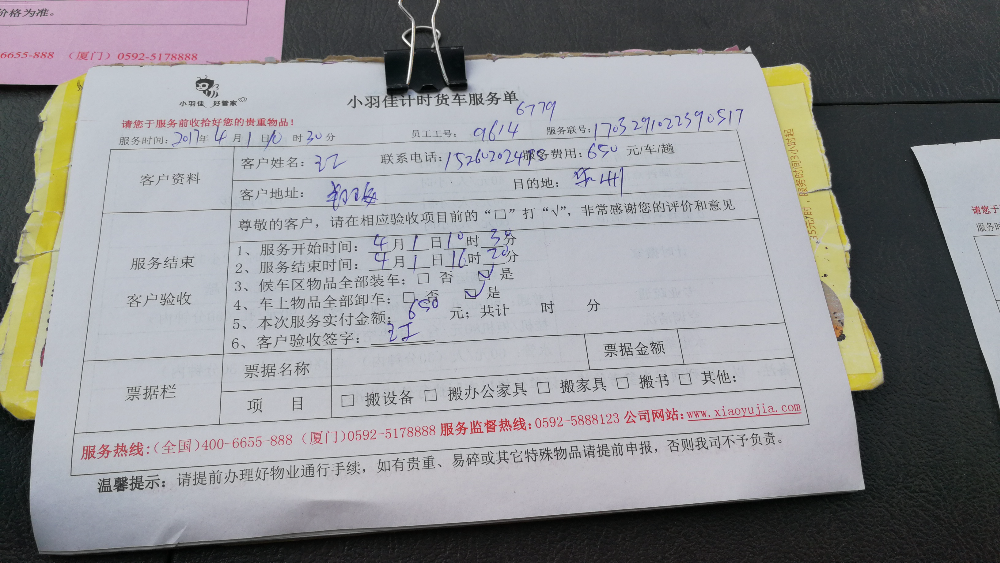 价格为准。
6655-888 （厦门）0592-5178888
小羽佳 好管家
小羽佳计时货车服务单
6779
请您于服务前收拾好您的贵重物品！
服务时间：2017年4月1日10时30分 员工工号：9614 服务联号：1703291022390517
客户资料
客户姓名： 联系电话： 服务费用：650元/车/趟
客户地址： 目的地：
服务结束
客户验收
尊敬的客户，请在相应验收项目前的“□”打“√”，非常感谢您的评价和意见
1、服务开始时间：4月1日10时30分
2、服务结束时间：4月1日16时20分
3、候车区物品全部装车：□ 否 ☑ 是
4、车上物品全部卸车：□ 否 ☑ 是
5、本次服务实付金额：650元；共计 时 分
6、客户验收签字：
票据栏
票据名称 票据金额
项 目 □ 搬设备 □ 搬办公家具 □ 搬家具 □ 搬书 □ 其他：
服务热线：(全国)400-6655-888 (厦门)0592-5178888 服务监督热线：0592-5888123 公司网站：www.xiaoyujia.com
温馨提示：请提前办理好物业通行手续，如有贵重、易碎或其它特殊物品请提前申报，否则我司不予负责。
请您于
服务时